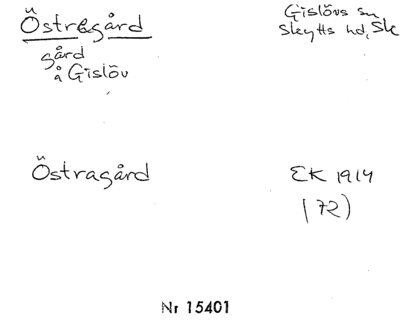 Östragård
gård
å Gislöv
Gislövs sn
Skytts hd, Sk
Östragård
EK 1914
(72)
Nr 15401